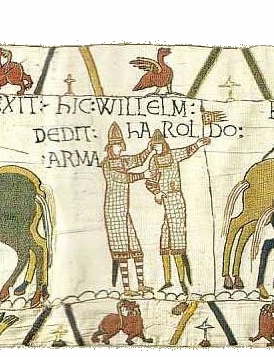 EXIT: hIC: WILLELM:
DEDIT: hAROLDO:
ARMA